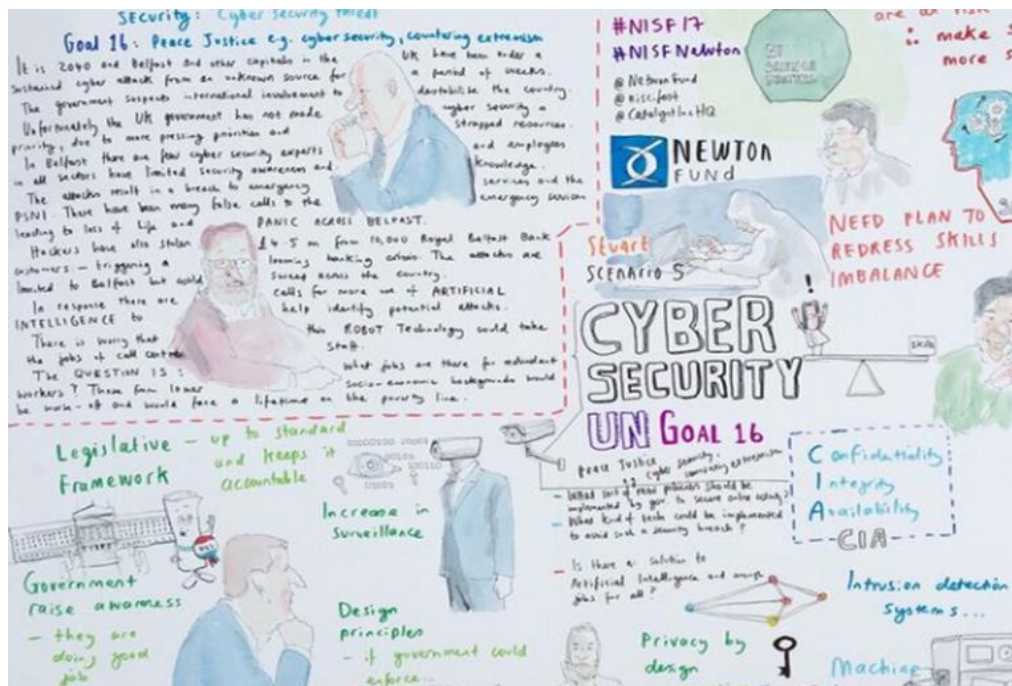 SECURITY: Cyber security threat
Goal 16: Peace Justice e.g. cyber security, countering extremism
It is 2040 and Belfast and other capitals in the UK have been under a
sustained cyber attack from an unknown source for a period of weeks.
The government suspects international involvement to destabilise the country.
Unfortunately the UK government has not made cyber security a
priority, due to more pressing priorities and strapped resources.
In Belfast there are few cyber security experts and employees
in all sectors have limited security awareness and knowledge.
The attacks result in a breach to emergency services and the
PSNI. There have been many false calls to the emergency services
leading to loss of life and PANIC ACROSS BELFAST.
Hackers have also stolen £4.5 m from 10,000 Royal Belfast Bank
customers - triggering a looming banking crisis. The attacks are
limited to Belfast but could spread across the country.
In response there are calls for more use of ARTIFICIAL
INTELLIGENCE to help identify potential attacks.
There is worry that this ROBOT Technology could take
the jobs of call centre staff.
The QUESTION IS: What jobs are there for redundant
workers? Those from lower socio-economic backgrounds would
be worse-off and would face a lifetime on the poverty line.
#NISF17
#NISFNewton
@NewtonFund
@niscifest
@CatalystIncHQ
NI
SCIENCE
FESTIVAL
are at risk
∴ make s
more s
NEWTON
FUND
Stuart
SCENARIO 5
NEED PLAN TO
REDRESS SKILLS
IMBALANCE
!
CYBER
SECURITY
UN GOAL 16
Peace Justice
e.g. cyber security,
countering extremism
- What sort of new policies should be
implemented by gov. to secure online activity?
- What kind of tech could be implemented
to avoid such a security breach?
- Is there a solution to
Artificial Intelligence and
jobs for all?
Confidentiality
Integrity
Availability
CIA
Legislative - up to standard
Framework and keeps it
accountable
Increase in
Surveillance
Government
raise awareness
- they are
doing good
job
Design
principles
- if government could
enforce...
Privacy by
design
Intrusion detection
systems...
Machine